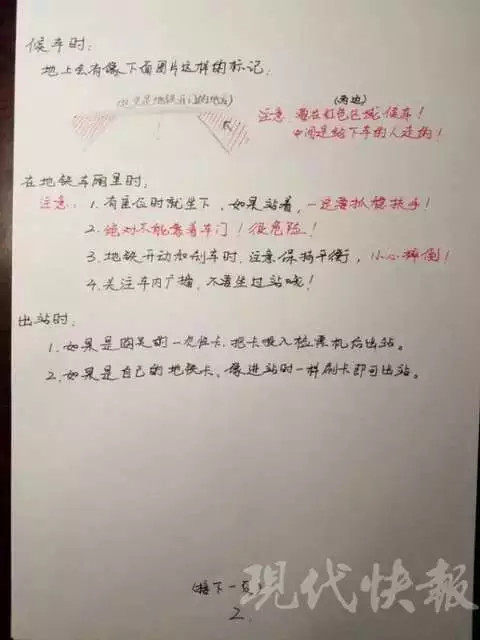 候车时：
地上会有像下面图片这样的标记：
(这里是地铁开门的地方)
(两边)
注意：要在红色区域候车！
中间是给下车的人走的！
在地铁车厢里时：
注意：1. 有座位时就坐下，如果站着，一定要抓稳扶手！
2. 绝对不能靠着车门！很危险！
3. 地铁开动和刹车时，注意保持平衡，小心摔倒！
4. 关注车内广播，不要坐过站哦！
出站时：
1. 如果是购买的一次性卡，把卡投入检票机后出站。
2. 如果是自己的地铁卡，像进站时一样刷卡即可出站。
(接下一页)
2.
现代快報